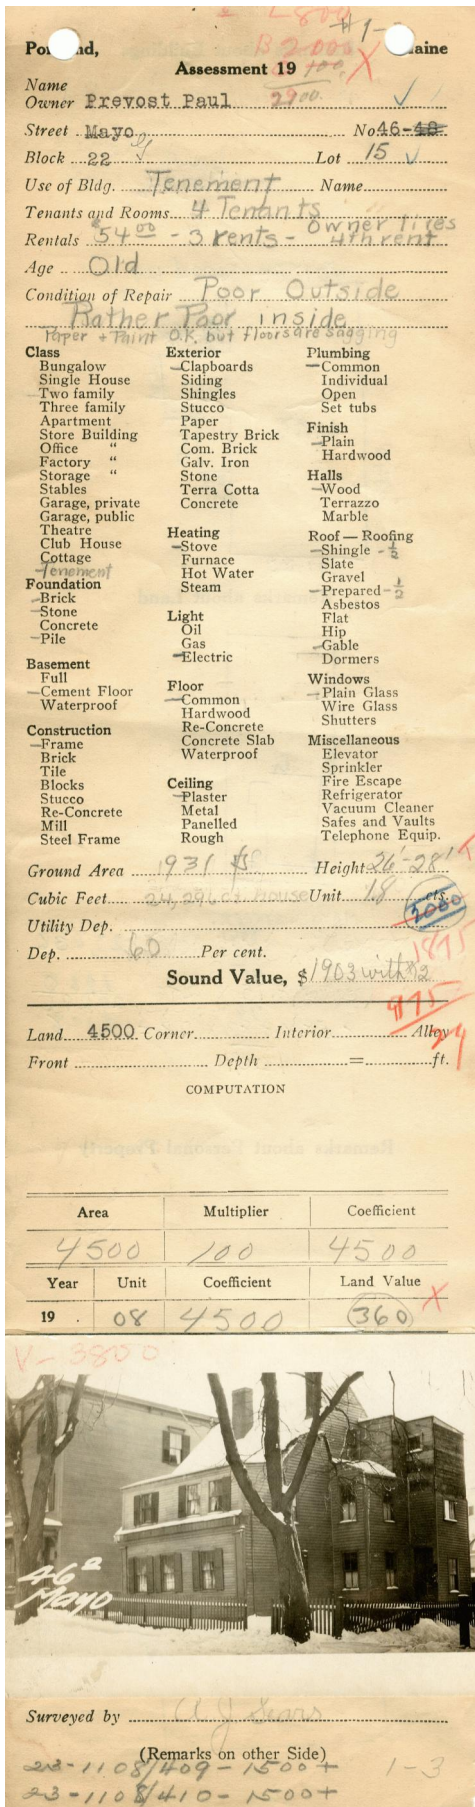 L 800 #1-
Portland, Maine
B 2000
Assessment 19
100
2900
Name
Owner Prevost Paul
Street Mayo St No 46-48
Block 22 Lot 15
Use of Bldg. Tenement Name
Tenants and Rooms 4 Tenants
Rentals $54 00 - 3 rents - Owner lives 4th rent
Age Old
Condition of Repair Poor Outside
Rather Poor inside
Paper + Paint O.K. but floors are sagging
Class
Bungalow
Single House
Two family
Three family
Apartment
Store Building
Office "
Factory "
Storage "
Stables
Garage, private
Garage, public
Theatre
Club House
Cottage
Tenement
Foundation
Brick
Stone
Concrete
Pile
Basement
Full
Cement Floor
Waterproof
Construction
Frame
Brick
Tile
Blocks
Stucco
Re-Concrete
Mill
Steel Frame
Exterior
Clapboards
Siding
Shingles
Stucco
Paper
Tapestry Brick
Com. Brick
Galv. Iron
Stone
Terra Cotta
Concrete
Heating
Stove
Furnace
Hot Water
Steam
Light
Oil
Gas
Electric
Floor
Common
Hardwood
Re-Concrete
Concrete Slab
Waterproof
Ceiling
Plaster
Metal
Panelled
Rough
Plumbing
Common
Individual
Open
Set tubs
Finish
Plain
Hardwood
Halls
Wood
Terrazzo
Marble
Roof — Roofing
Shingle - ½
Slate
Gravel
Prepared - ½
Asbestos
Flat
Hip
Gable
Dormers
Windows
Plain Glass
Wire Glass
Shutters
Miscellaneous
Elevator
Sprinkler
Fire Escape
Refrigerator
Vacuum Cleaner
Safes and Vaults
Telephone Equip.
Ground Area 1931 Height 26'-28'
Cubic Feet house Unit 18 cts.
2000
Utility Dep.
1875
Dep. 60 Per cent.
Sound Value, $1903 with #2
975
Land 4500 Corner Interior Alley
Front Depth = ft.
COMPUTATION
Area Multiplier Coefficient
4500 100 4500
Year Unit Coefficient Land Value
19 . 08 4500 360 X
V-3800
46 2
Mayo
Surveyed by A J Sears
(Remarks on other Side)
23-1108/409-1500+ 1-3
23-1108/410-1500+